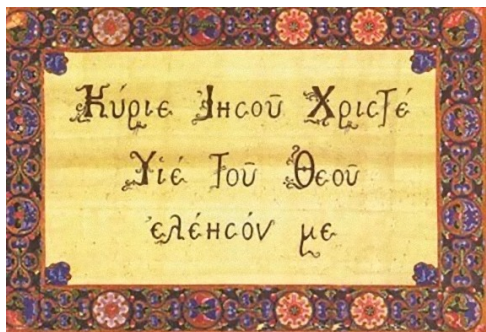 Κύριε Ἰησοῦ Χριστέ
Υἱέ τοῦ Θεοῦ
ἐλέησόν με